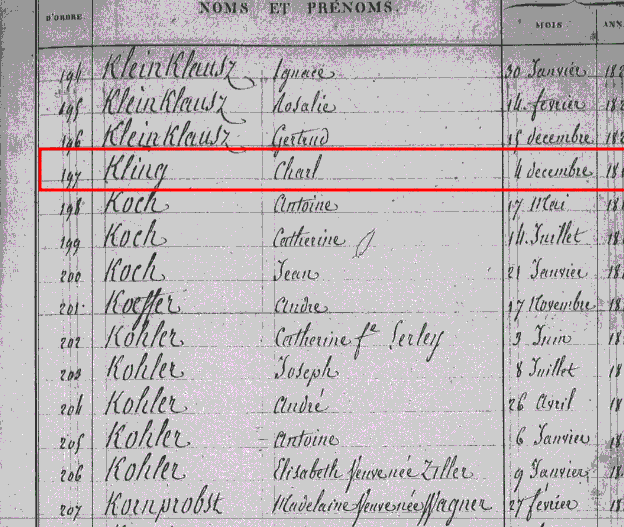 D'ORDRE NOMS ET PRÉNOMS. MOIS ANN
194 KleinKlausz Ignace 30 Janvier 182
195 KleinKlausz Rosalie 14 février 18
196 KleinKlausz Gertrud 15 decembre 182
197 Kling Charl 4 decembre 18
198 Koch Antoine 17 Mai 18
199 Koch Catherine 14 Juillet 18
200 Koch Jean 21 Janvier 18
201 Koeffer Andre 17 Novembre 18
202 Kohler Catherine fe Serley 3 Juin 18
203 Kohler Joseph 8 Juillet 18
204 Kohler André 26 Avril 18
205 Kohler Antoine 6 Janvier 18
206 Kohler Elisabeth Veuve née Ziller 9 Janvier 18
207 Kornprobst Madelaine Veuve née Wagner 27 février 18